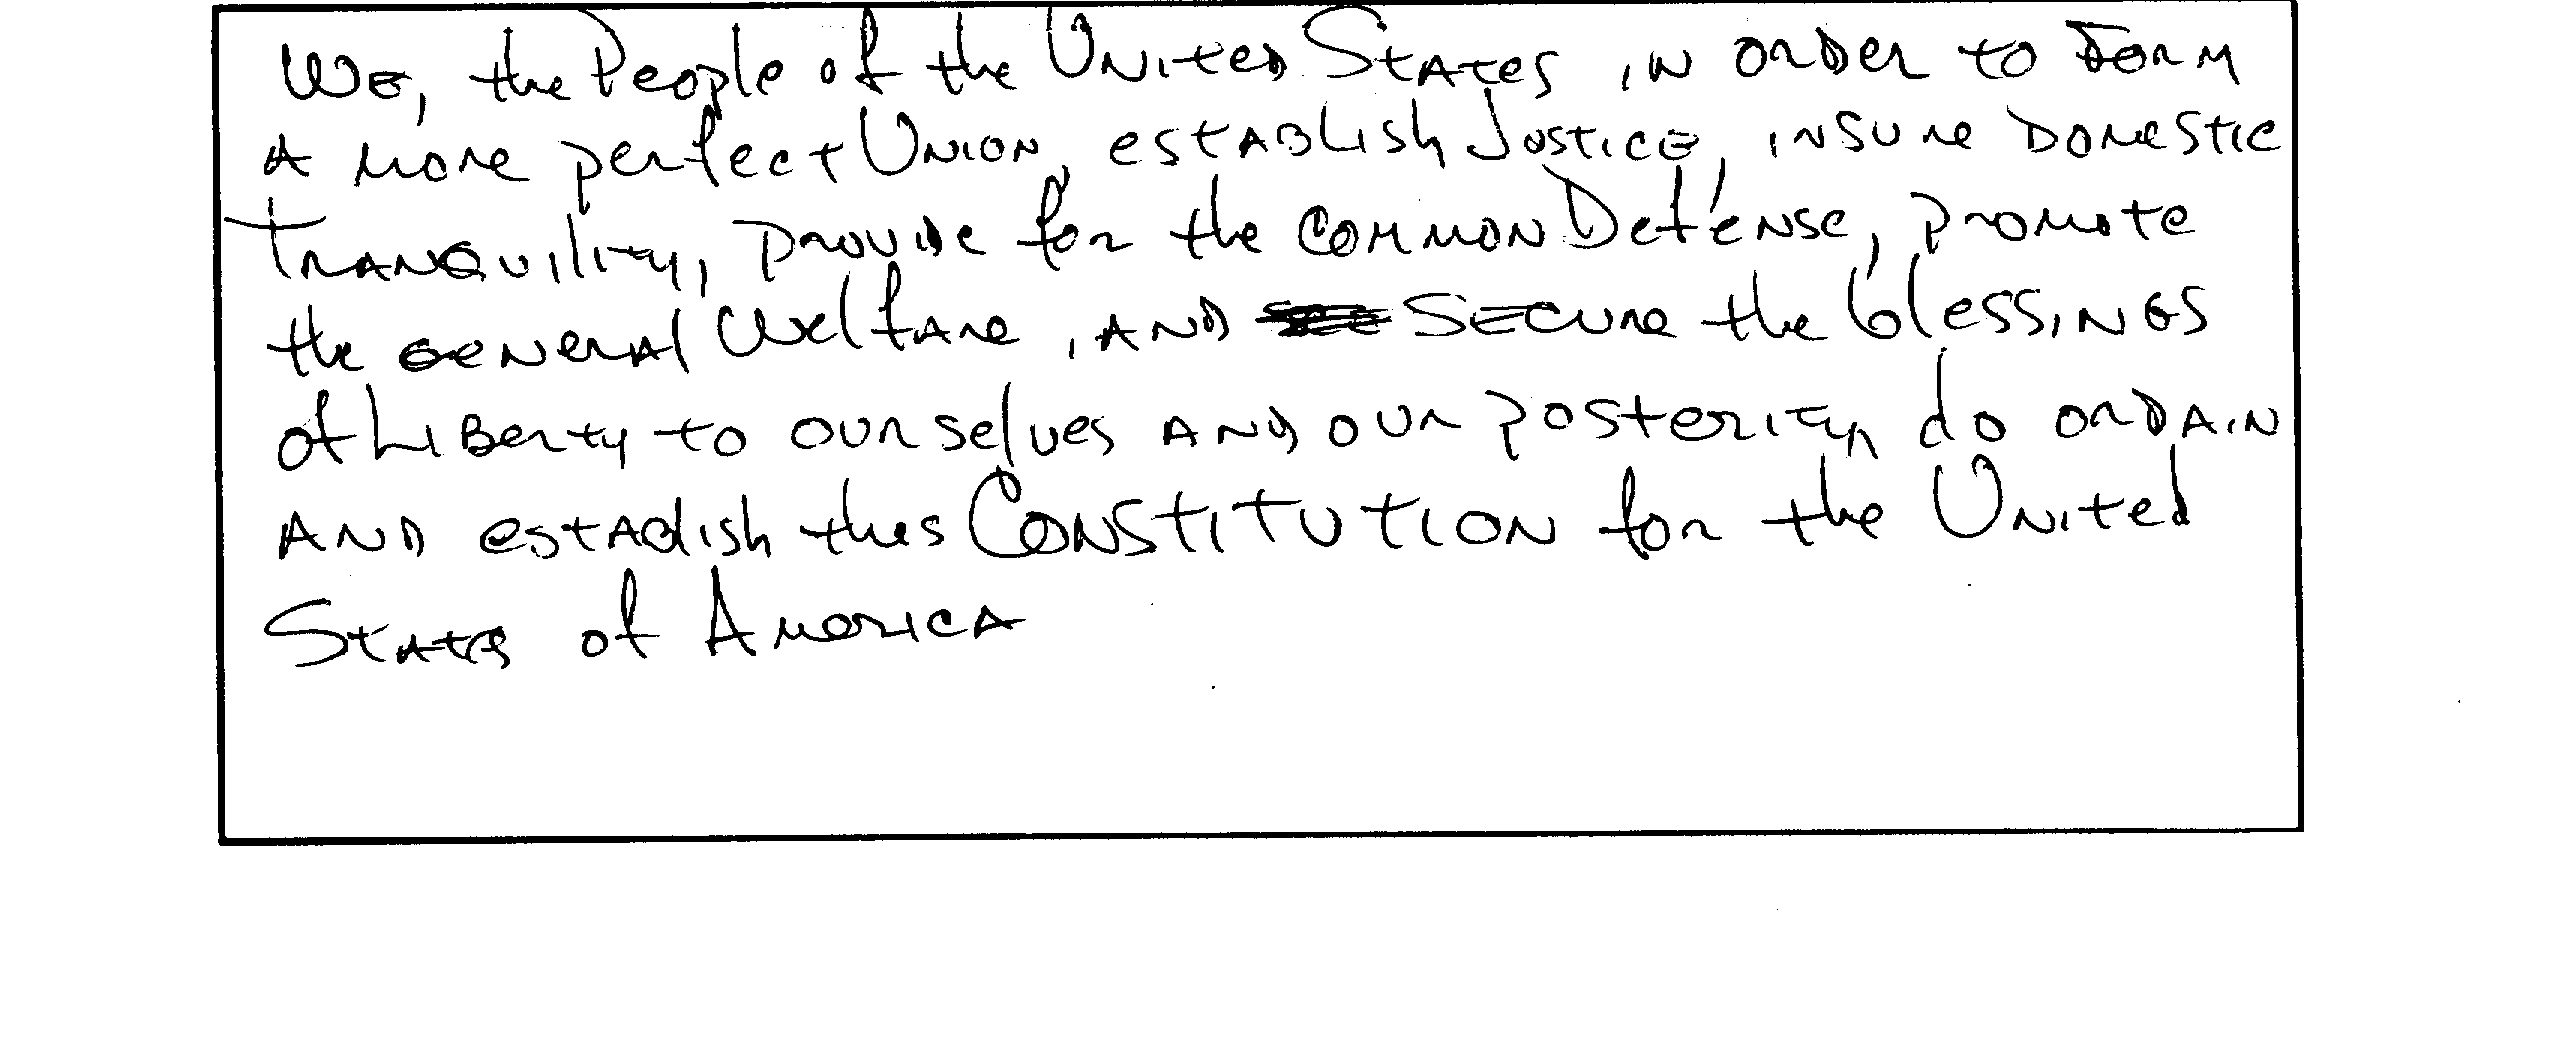 We, the People of the United States in order to form
a more perfect Union, establish Justice, insure domestic
tranquility, provide for the common Defense, promote
the general Welfare, and secure the blessings
of Liberty to ourselves and our posterity do ordain
and establish this Constitution for the United
States of America